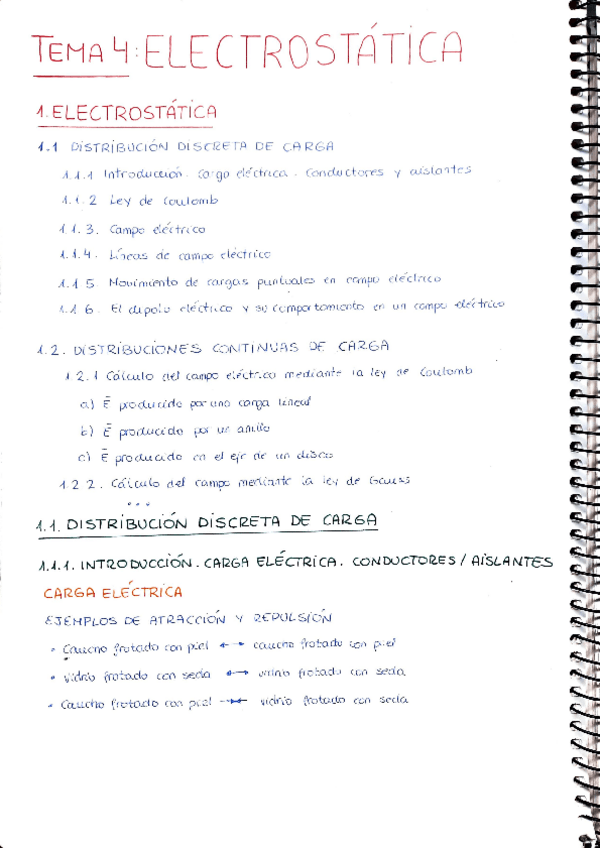 TEMA 4: ELECTROSTÁTICA
1. ELECTROSTÁTICA
1.1 DISTRIBUCIÓN DISCRETA DE CARGA
1.1.1 Introducción. Carga eléctrica. Conductores y aislantes
1.1.2 Ley de Coulomb
1.1.3. Campo eléctrico
1.1.4. Líneas de campo eléctrico
1.1.5. Movimiento de cargas puntuales en campo eléctrico
1.1.6. El dipolo eléctrico y su comportamiento en un campo eléctrico
1.2. DISTRIBUCIONES CONTINUAS DE CARGA
1.2.1 Cálculo del campo eléctrico mediante la ley de Coulomb
a) Ē producido por una carga lineal
b) Ē producido por un anillo
c) Ē producido en el eje de un disco
1.2.2. Cálculo del campo mediante la ley de Gauss
...
1.1. DISTRIBUCIÓN DISCRETA DE CARGA
1.1.1. INTRODUCCIÓN. CARGA ELÉCTRICA. CONDUCTORES / AISLANTES
CARGA ELÉCTRICA
EJEMPLOS DE ATRACCIÓN Y REPULSIÓN
• Caucho frotado con piel ←→ caucho frotado con piel
• vidrio frotado con seda ←→ vidrio frotado con seda
• Caucho frotado con piel →← vidrio frotado con seda